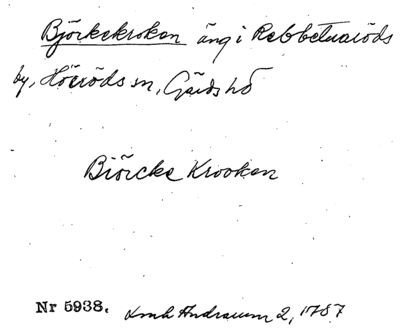 Björkekroken äng i Rebbetuaröds
by, Hörröds sn, Gärds hd
Biörcke Krooken
Nr 5938. Lmh Andrarum 2, 1757